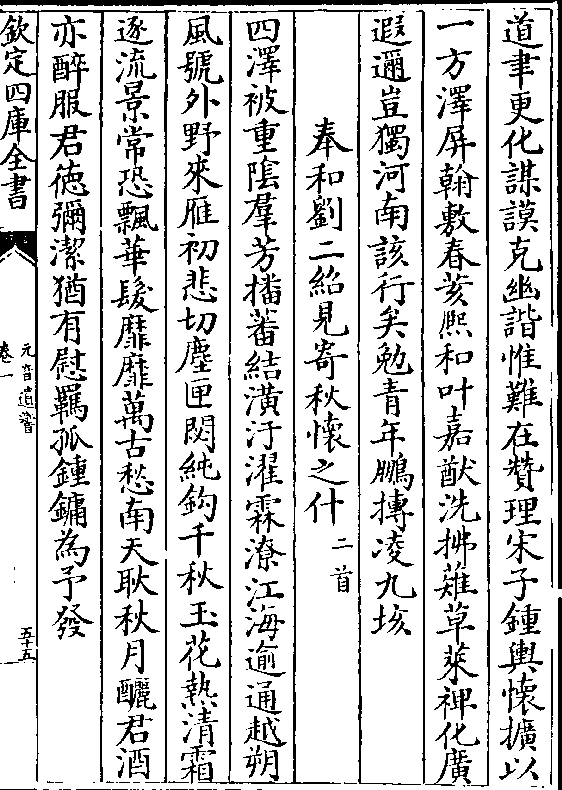 道聿更化謀謨克幽諧惟難在贊理宋子鍾輿懷擴以
一方澤屏翰敷春荄熈和叶嘉猷洗拂薙草萊裨化廣
遐邇豈獨河南該行矣勉青年鵬摶凌九垓
奉和劉二紹見寄秋懷之什二首
四澤被重隂羣芳播蕃結潢汙濯霖潦江海逾通越朔
風號外野來雁初悲切塵匣閟純鈎千秋玉花熱清霜
逐流景常恐飄華髮靡靡萬古愁南天耿秋月釃君酒
亦醉服君徳彌潔猶有慰羈孤鍾鏞為予發
欽定四庫全書
元音遺響
卷一
五十五